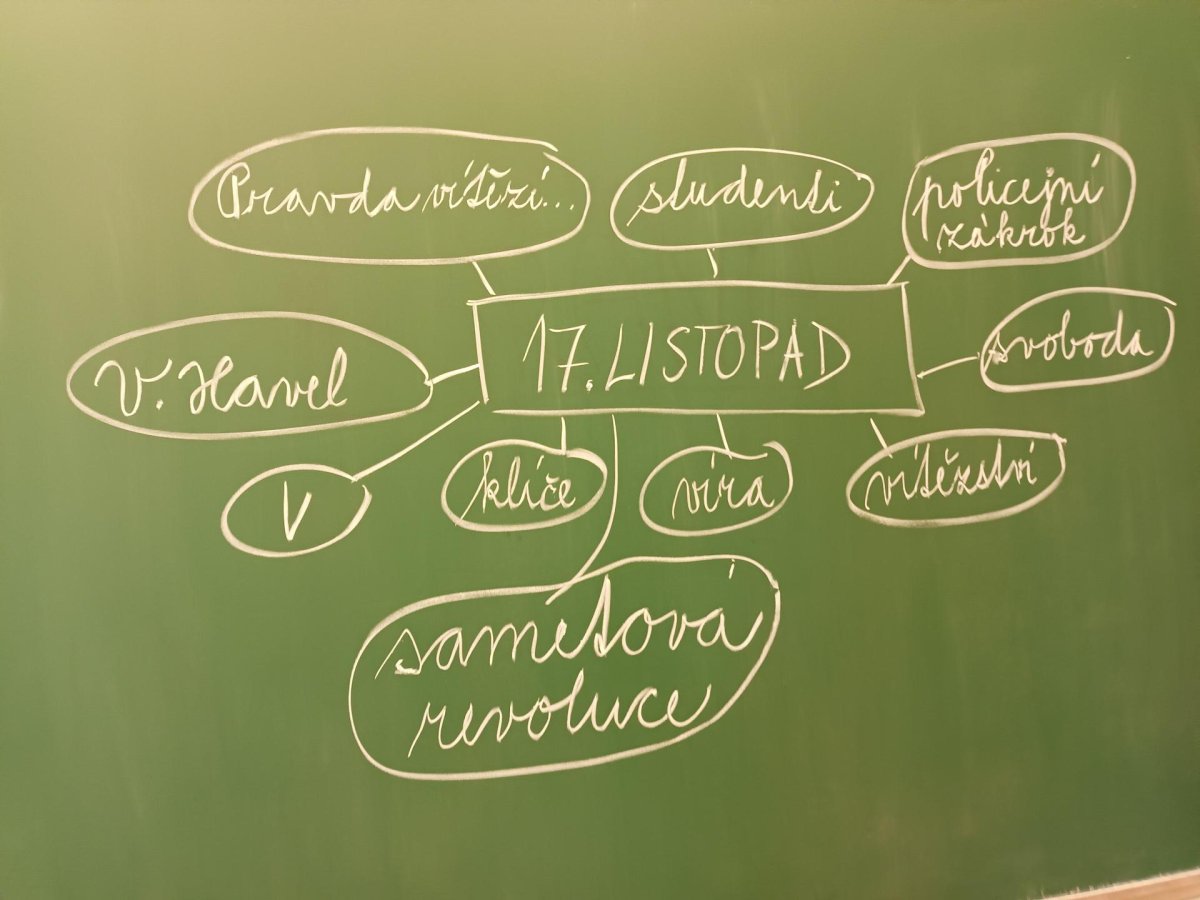 Pravda vítězí...
studenti
policejní
zákrok
17. LISTOPAD
svoboda
V. Havel
V
klíče
víra
vítězství
sametová
revoluce